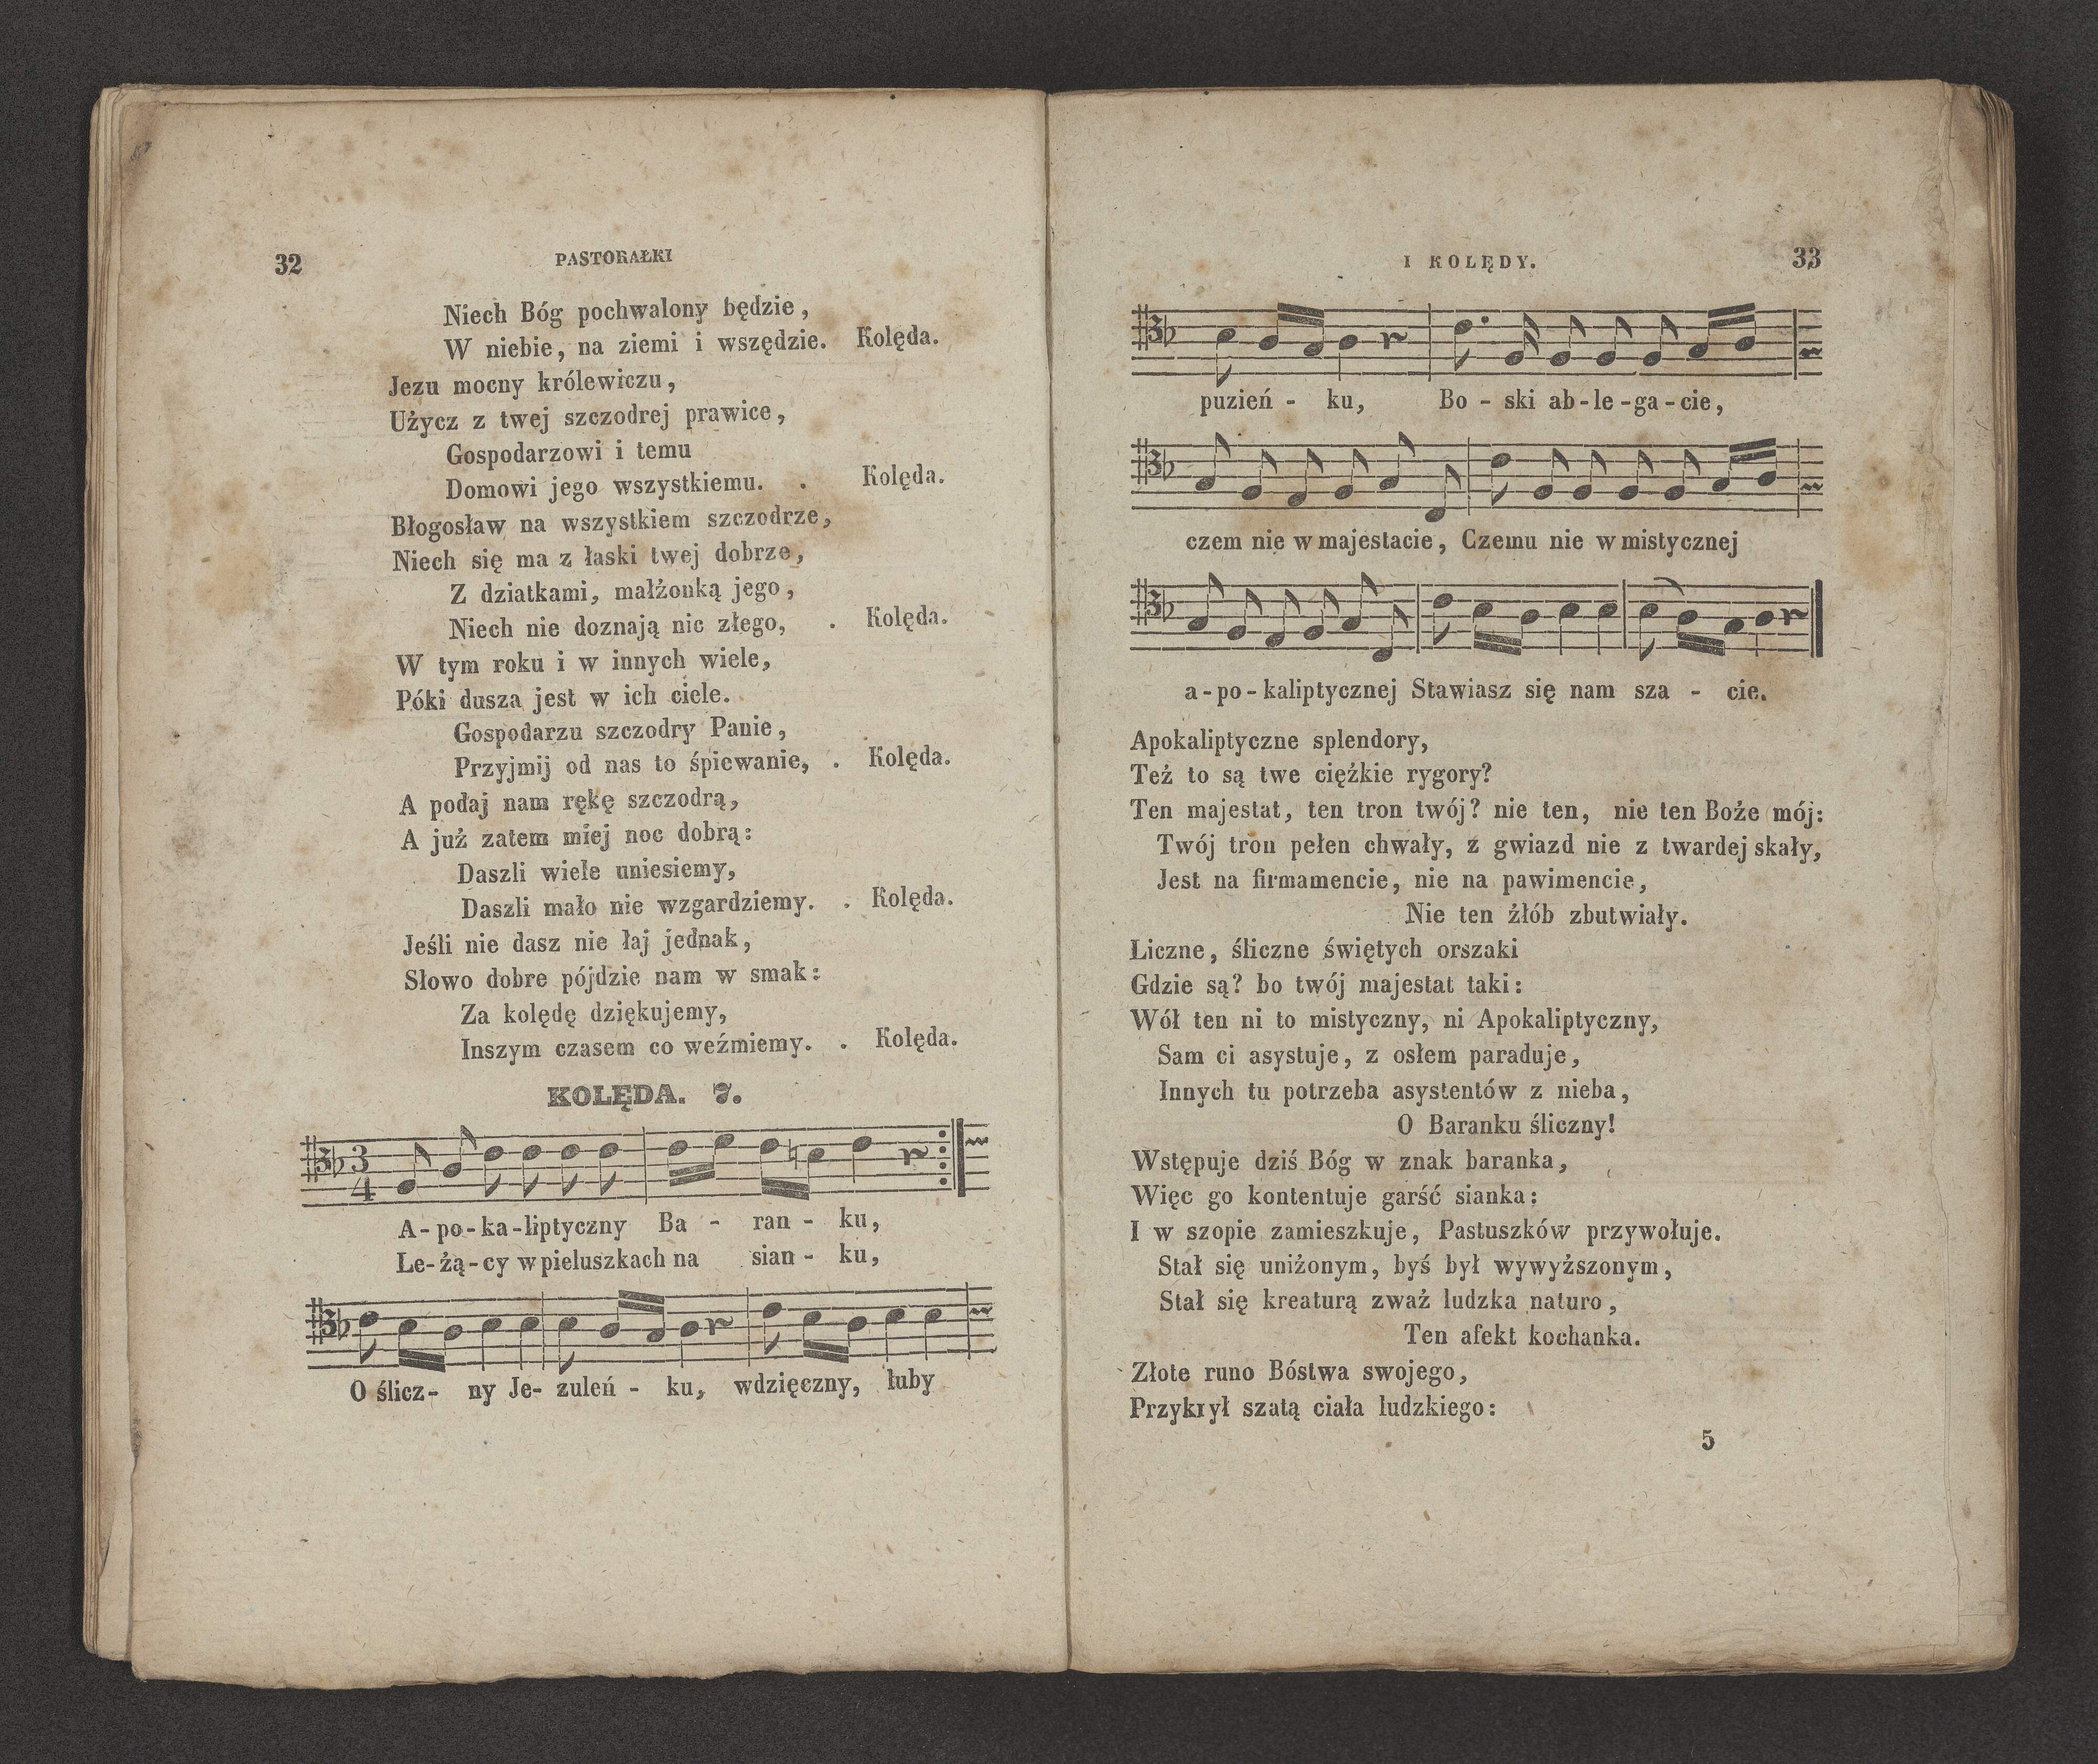 32 PASTORAŁKI
Niech Bóg pochwalony będzie,
W niebie, na ziemi i wszędzie. Kolęda.
Jezu mocny królewiczu,
Użycz z twej szczodrej prawice,
Gospodarzowi i temu
Domowi jego wszystkiemu. . Kolęda.
Błogosław na wszystkiem szczodrze,
Niech się ma z łaski twej dobrze,
Z dziatkami, małżonką jego,
Niech nie doznają nic złego, . Kolęda.
W tym roku i w innych wiele,
Póki dusza jest w ich ciele.
Gospodarzu szczodry Panie,
Przyjmij od nas to śpiewanie, . Kolęda.
A podaj nam rękę szczodrą,
A już zatem miej noc dobrą:
Daszli wiele uniesiemy,
Daszli mało nie wzgardziemy. . Kolęda.
Jeśli nie dasz nie łaj jednak,
Słowo dobre pójdzie nam w smak:
Za kolędę dziękujemy,
Inszym czasem co weźmiemy. . Kolęda.
KOLĘDA. 7.
3
4
A-po-ka-liptyczny Ba - ran - ku,
Le-żą-cy w pieluszkach na sian - ku,
O ślicz- ny Je- zuleń - ku, wdzięczny, luby
I KOLĘDY. 33
puzień - ku, Bo - ski ab-le-ga-cie,
czem nie w majestacie, Czemu nie w mistycznej
a-po-kaliptycznej Stawiasz się nam sza - cie.
Apokaliptyczne splendory,
Też to są twe ciężkie rygory?
Ten majestat, ten tron twój? nie ten, nie ten Boże mój:
Twój tron pełen chwały, z gwiazd nie z twardej skały,
Jest na firmamencie, nie na pawimencie,
Nie ten żłób zbutwiały.
Liczne, śliczne świętych orszaki
Gdzie są? bo twój majestat taki:
Wół ten ni to mistyczny, ni Apokaliptyczny,
Sam ci asystuje, z osłem paraduje,
Innych tu potrzeba asystentów z nieba,
O Baranku śliczny!
Wstępuje dziś Bóg w znak baranka,
Więc go kontentuje garść sianka:
I w szopie zamieszkuje, Pastuszków przywołuje.
Stał się uniżonym, byś był wywyższonym,
Stał się kreaturą zważ ludzka naturo,
Ten afekt kochanka.
Złote runo Bóstwa swojego,
Przykrył szatą ciała ludzkiego:
5